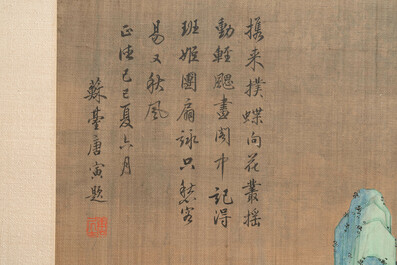 携来撲蝶向花叢摇
動輕颸畫閣中記得
班姬團扇詠只愁容
易又秋風
正德己巳夏六月
蘇臺唐寅題